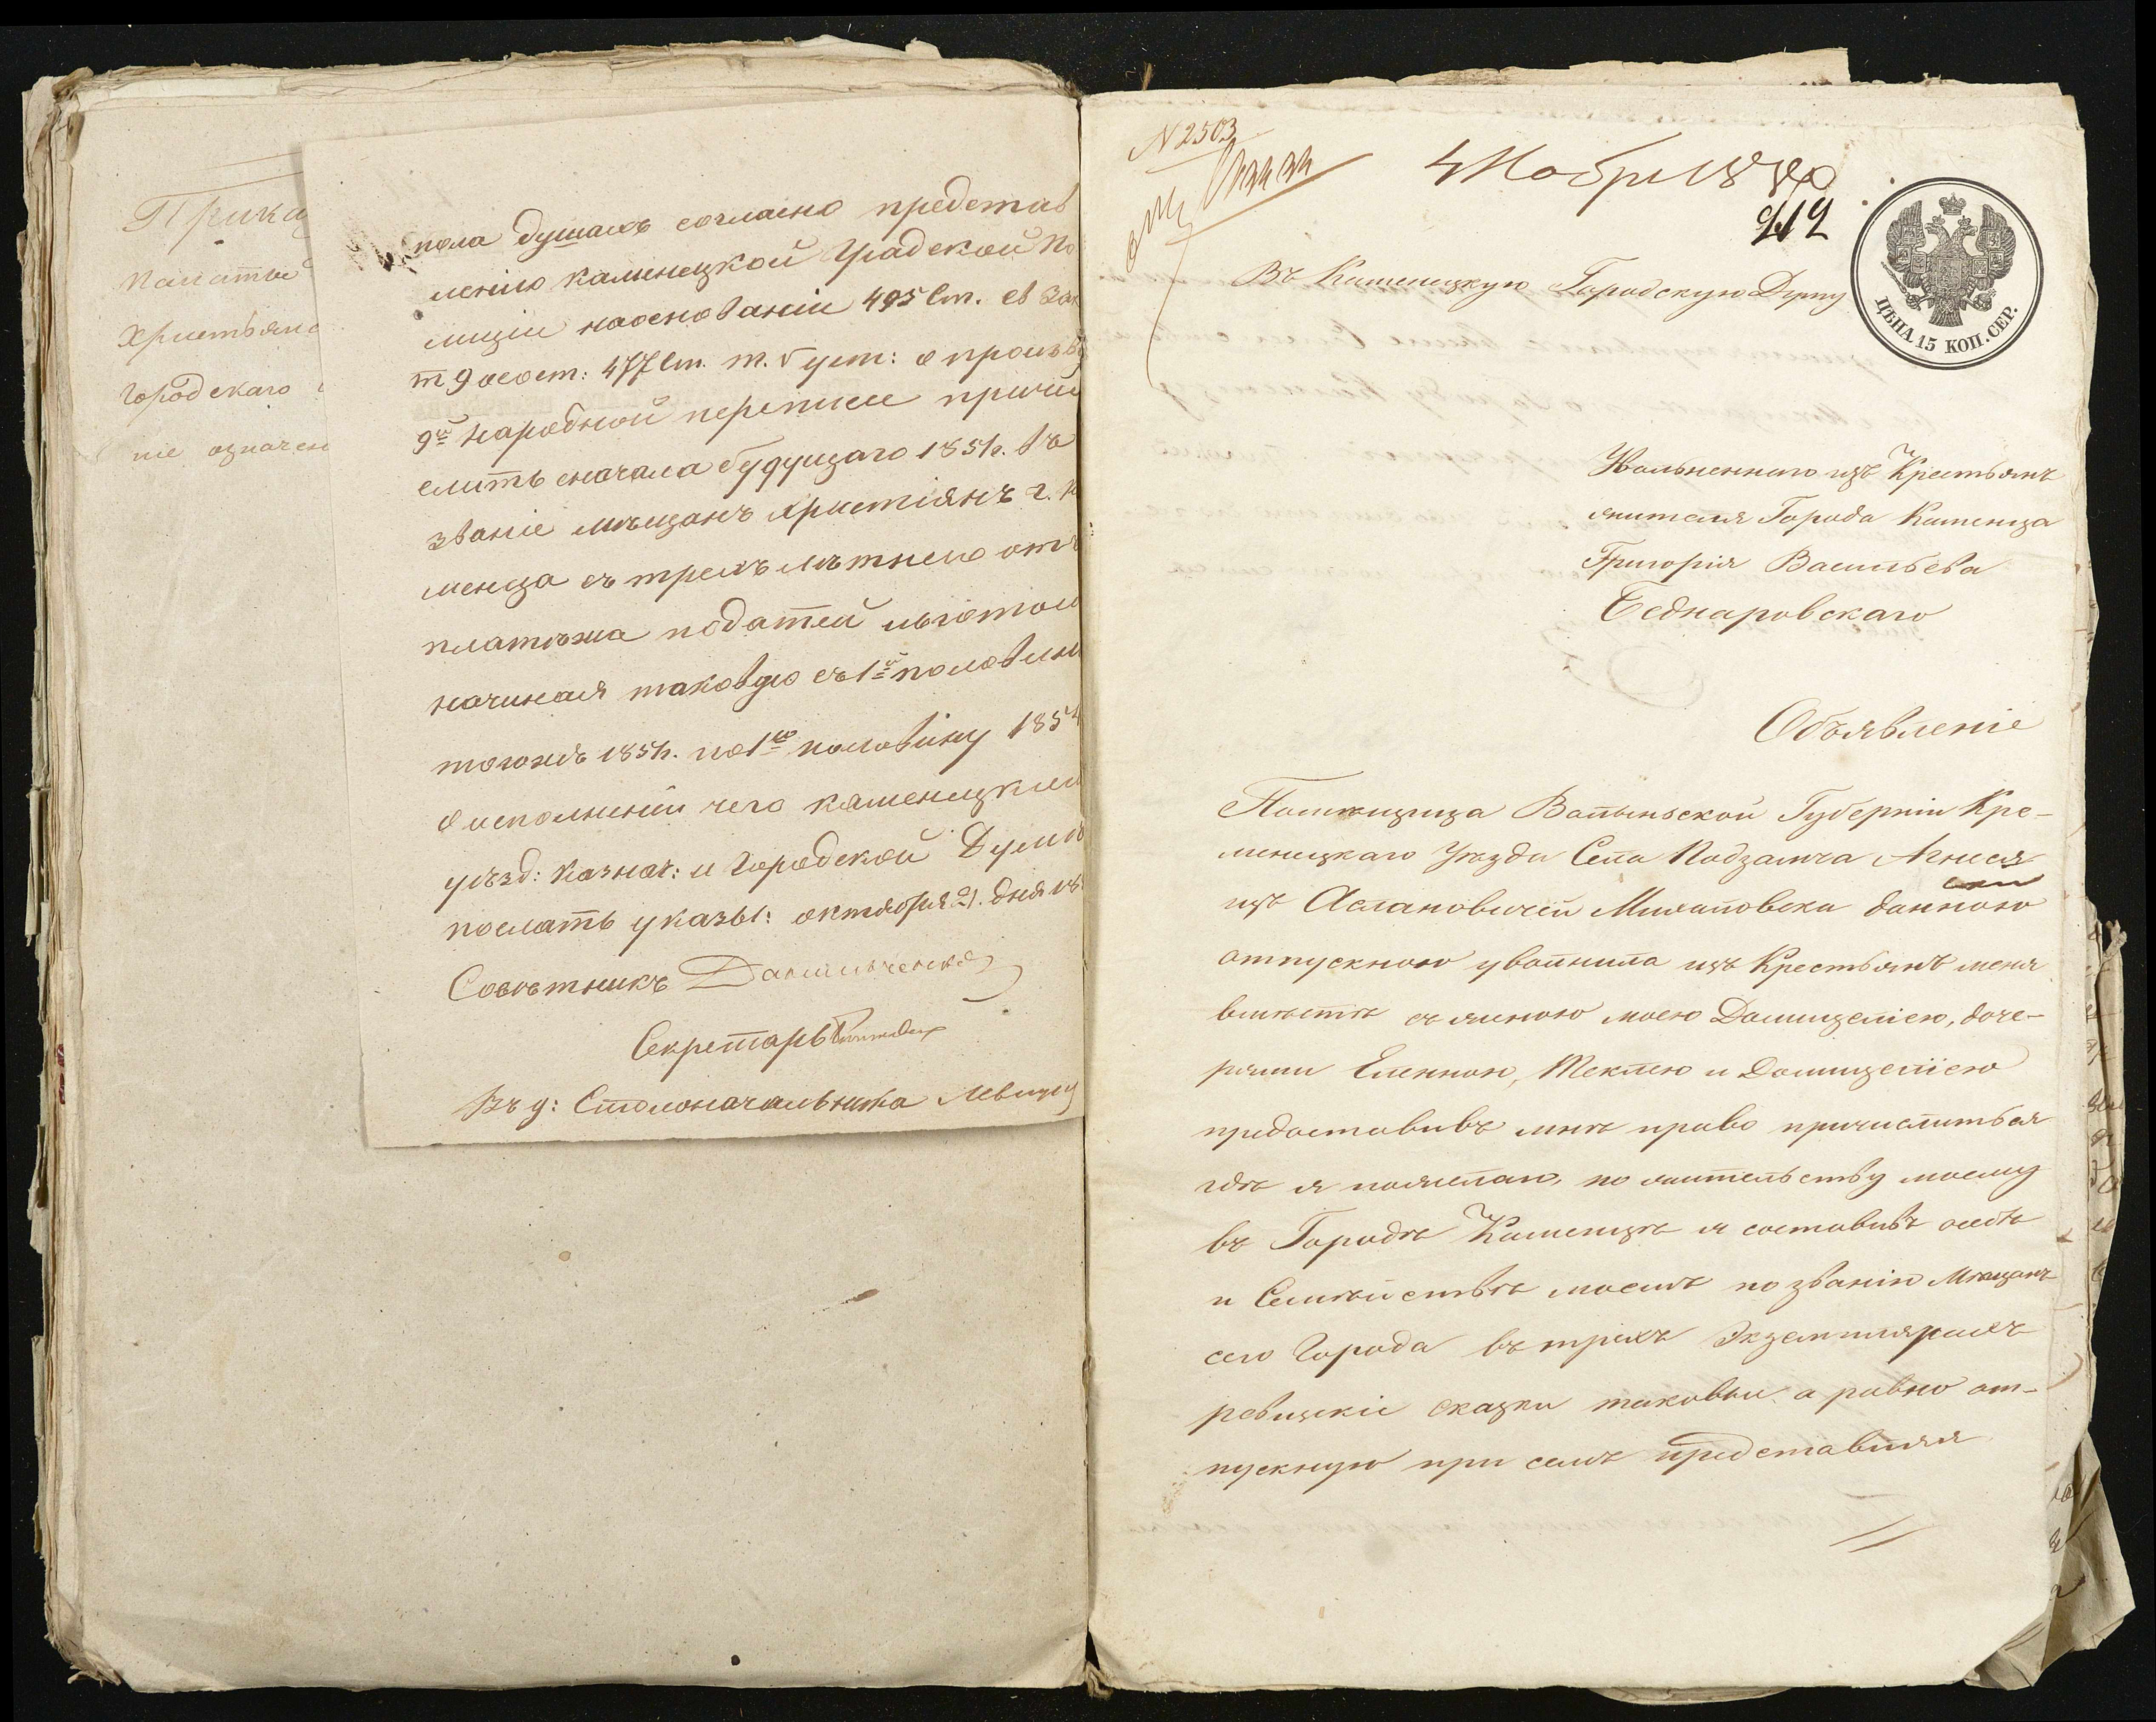 Прика
Палатой
Христьяно
городскаго
ніе означен
пола душахъ согласно представ
ленію каменецкой Градской По
лиціи наосновании 495 Ст. св Зак
т 9 осост: 477 Ст. т. V уст: о произв
9й Народной переписи причи
слить сначала будущаго 1851г. въ
званіе мѣщанъ христіянъ г. К
менца съ трехъ лѣтнею отъ
платежа податей льготою
начиная таковую съ 1й половины
тогожъ 1851г. по 1ю половину 1854
о исполненіи чего каменецким
уѣзд: Казнач: и Городской Думѣ
послать указы: октября 21. дня 18
Совѣтникъ Данильченко
Секретарь
Въ д: Столоначальника Левицкій
N 2503
4 Ноября 1850
212
Въ Каменецкую Городскую Думу
ЦѢНА 15 КОП. СЕР.
Увольненнаго изъ Крестьянъ
жителя Города Каменца
Григорія Васильева
Беднаровскаго
Объявленіе
Помѣщица Волыньской Губерніи Кре-
менецкаго Уѣзда Села Подзамча Агнеса
изъ Аслановичей Миха­ловска данною
отпускною уволнила изъ Крестьянъ меня
вмѣстѣ съ женою моею Домицеліею, доче-
рями Еленною, Теклею и Домицеліею
предоставивъ мнѣ право причислиться
гдѣ я пожелаю, по жительству моему
въ Городѣ Каменцѣ я составивъ осебѣ
и Семѣйствѣ моемъ по званію Мѣщанъ
сего Города въ трехъ Экземплярахъ
ревизскіе сказки таковыи а равно от-
пускную при семъ представляя